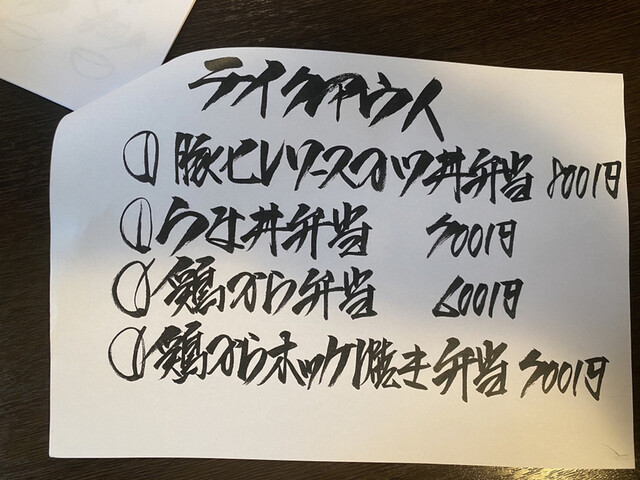 テイクアウト
① 豚ヒレソースカツ丼弁当 800円
① 丼弁当 700円
① 鶏から弁当 600円
① 鶏からホッケ焼き弁当 700円